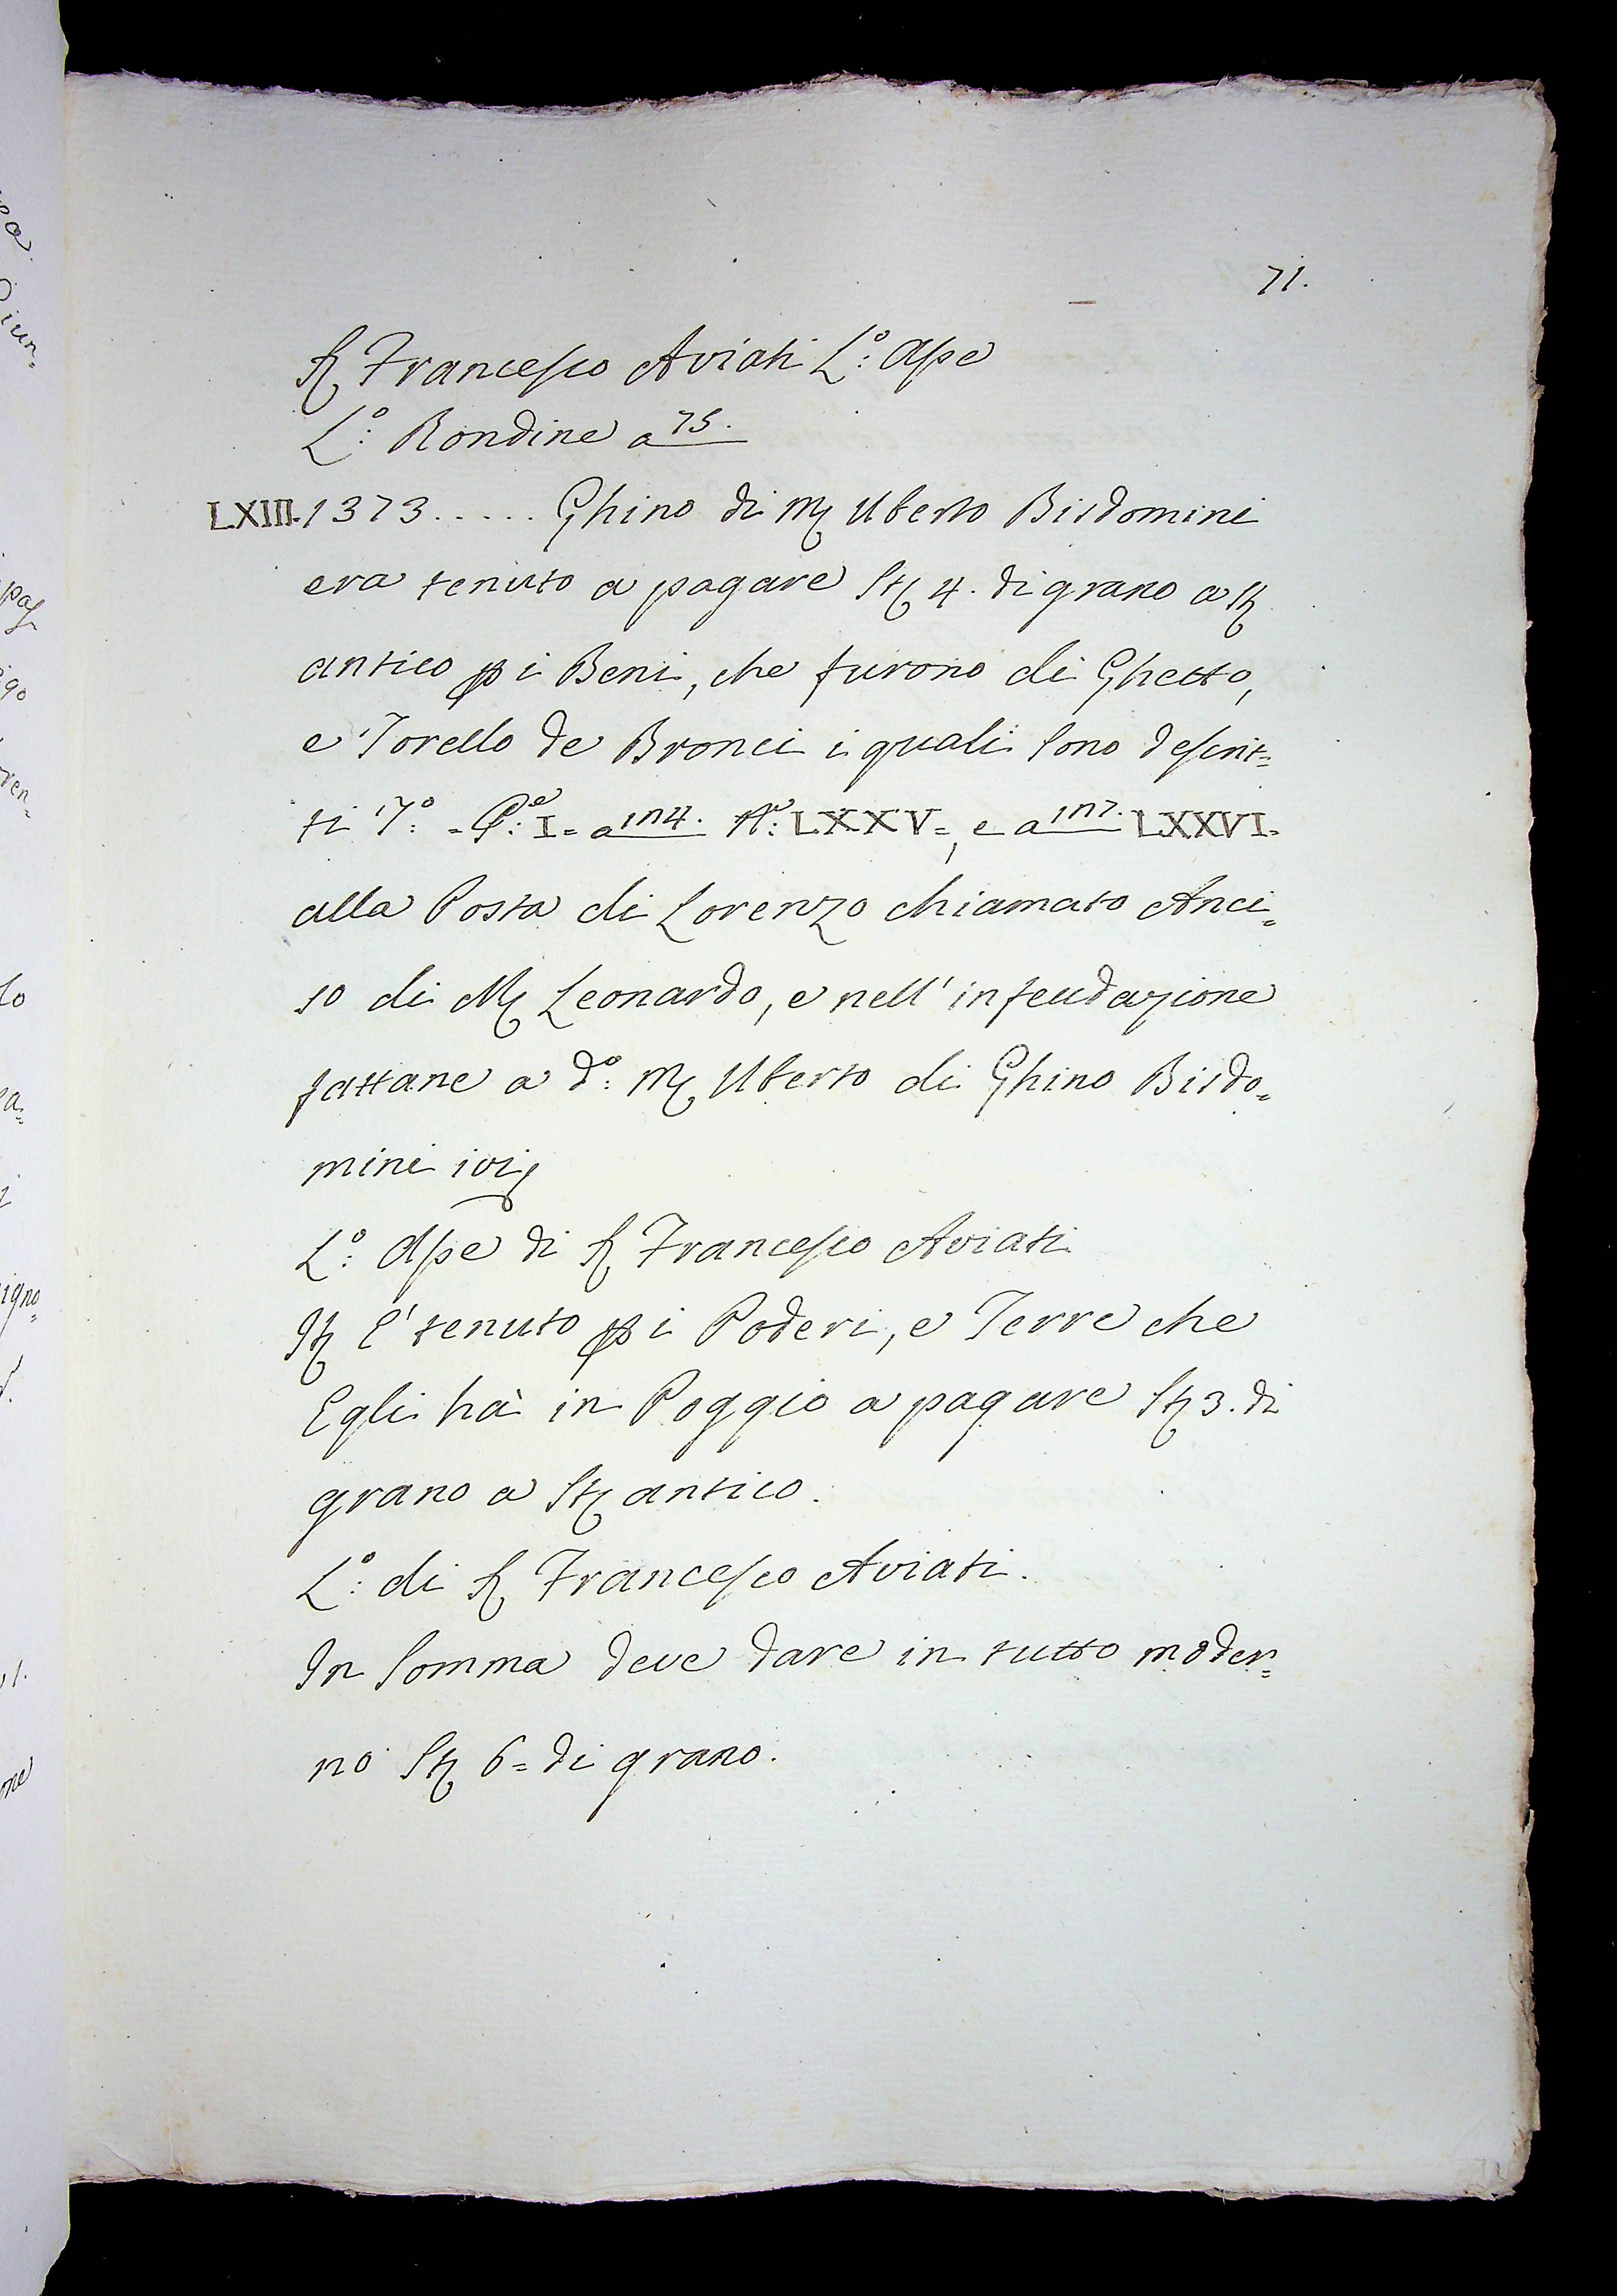 71.
S. Francesco Aviati L.º: Ape
L.º: Rondine a 75.
LXIII. 1373..... Ghino di M. Uberto Bisdomini
era tenuto a pagare St. 4. di grano a St.
antico p i Beni, che furono di Ghetto,
e Torello de Bronci i quali sono descrit=
ti T.º: = P.e: I= a 114. N.º: LXXV=, e a 117. LXXVI=
alla Posta di Lorenzo chiamato Anci=
so di M. Leonardo, e nell' infeudazione
fattane a d.º: M. Uberto di Ghino Bisdo=
mini ivi
L.º: Ape di S. Francesco Aviati
It. E' tenuto p i Poderi, e Terre che
Egli hà in Poggio a pagare St. 3. di
grano a St. antico.
L.º: di S. Francesco Aviati.
In somma deve dare in tutto moder=
no St. 6= di grano.